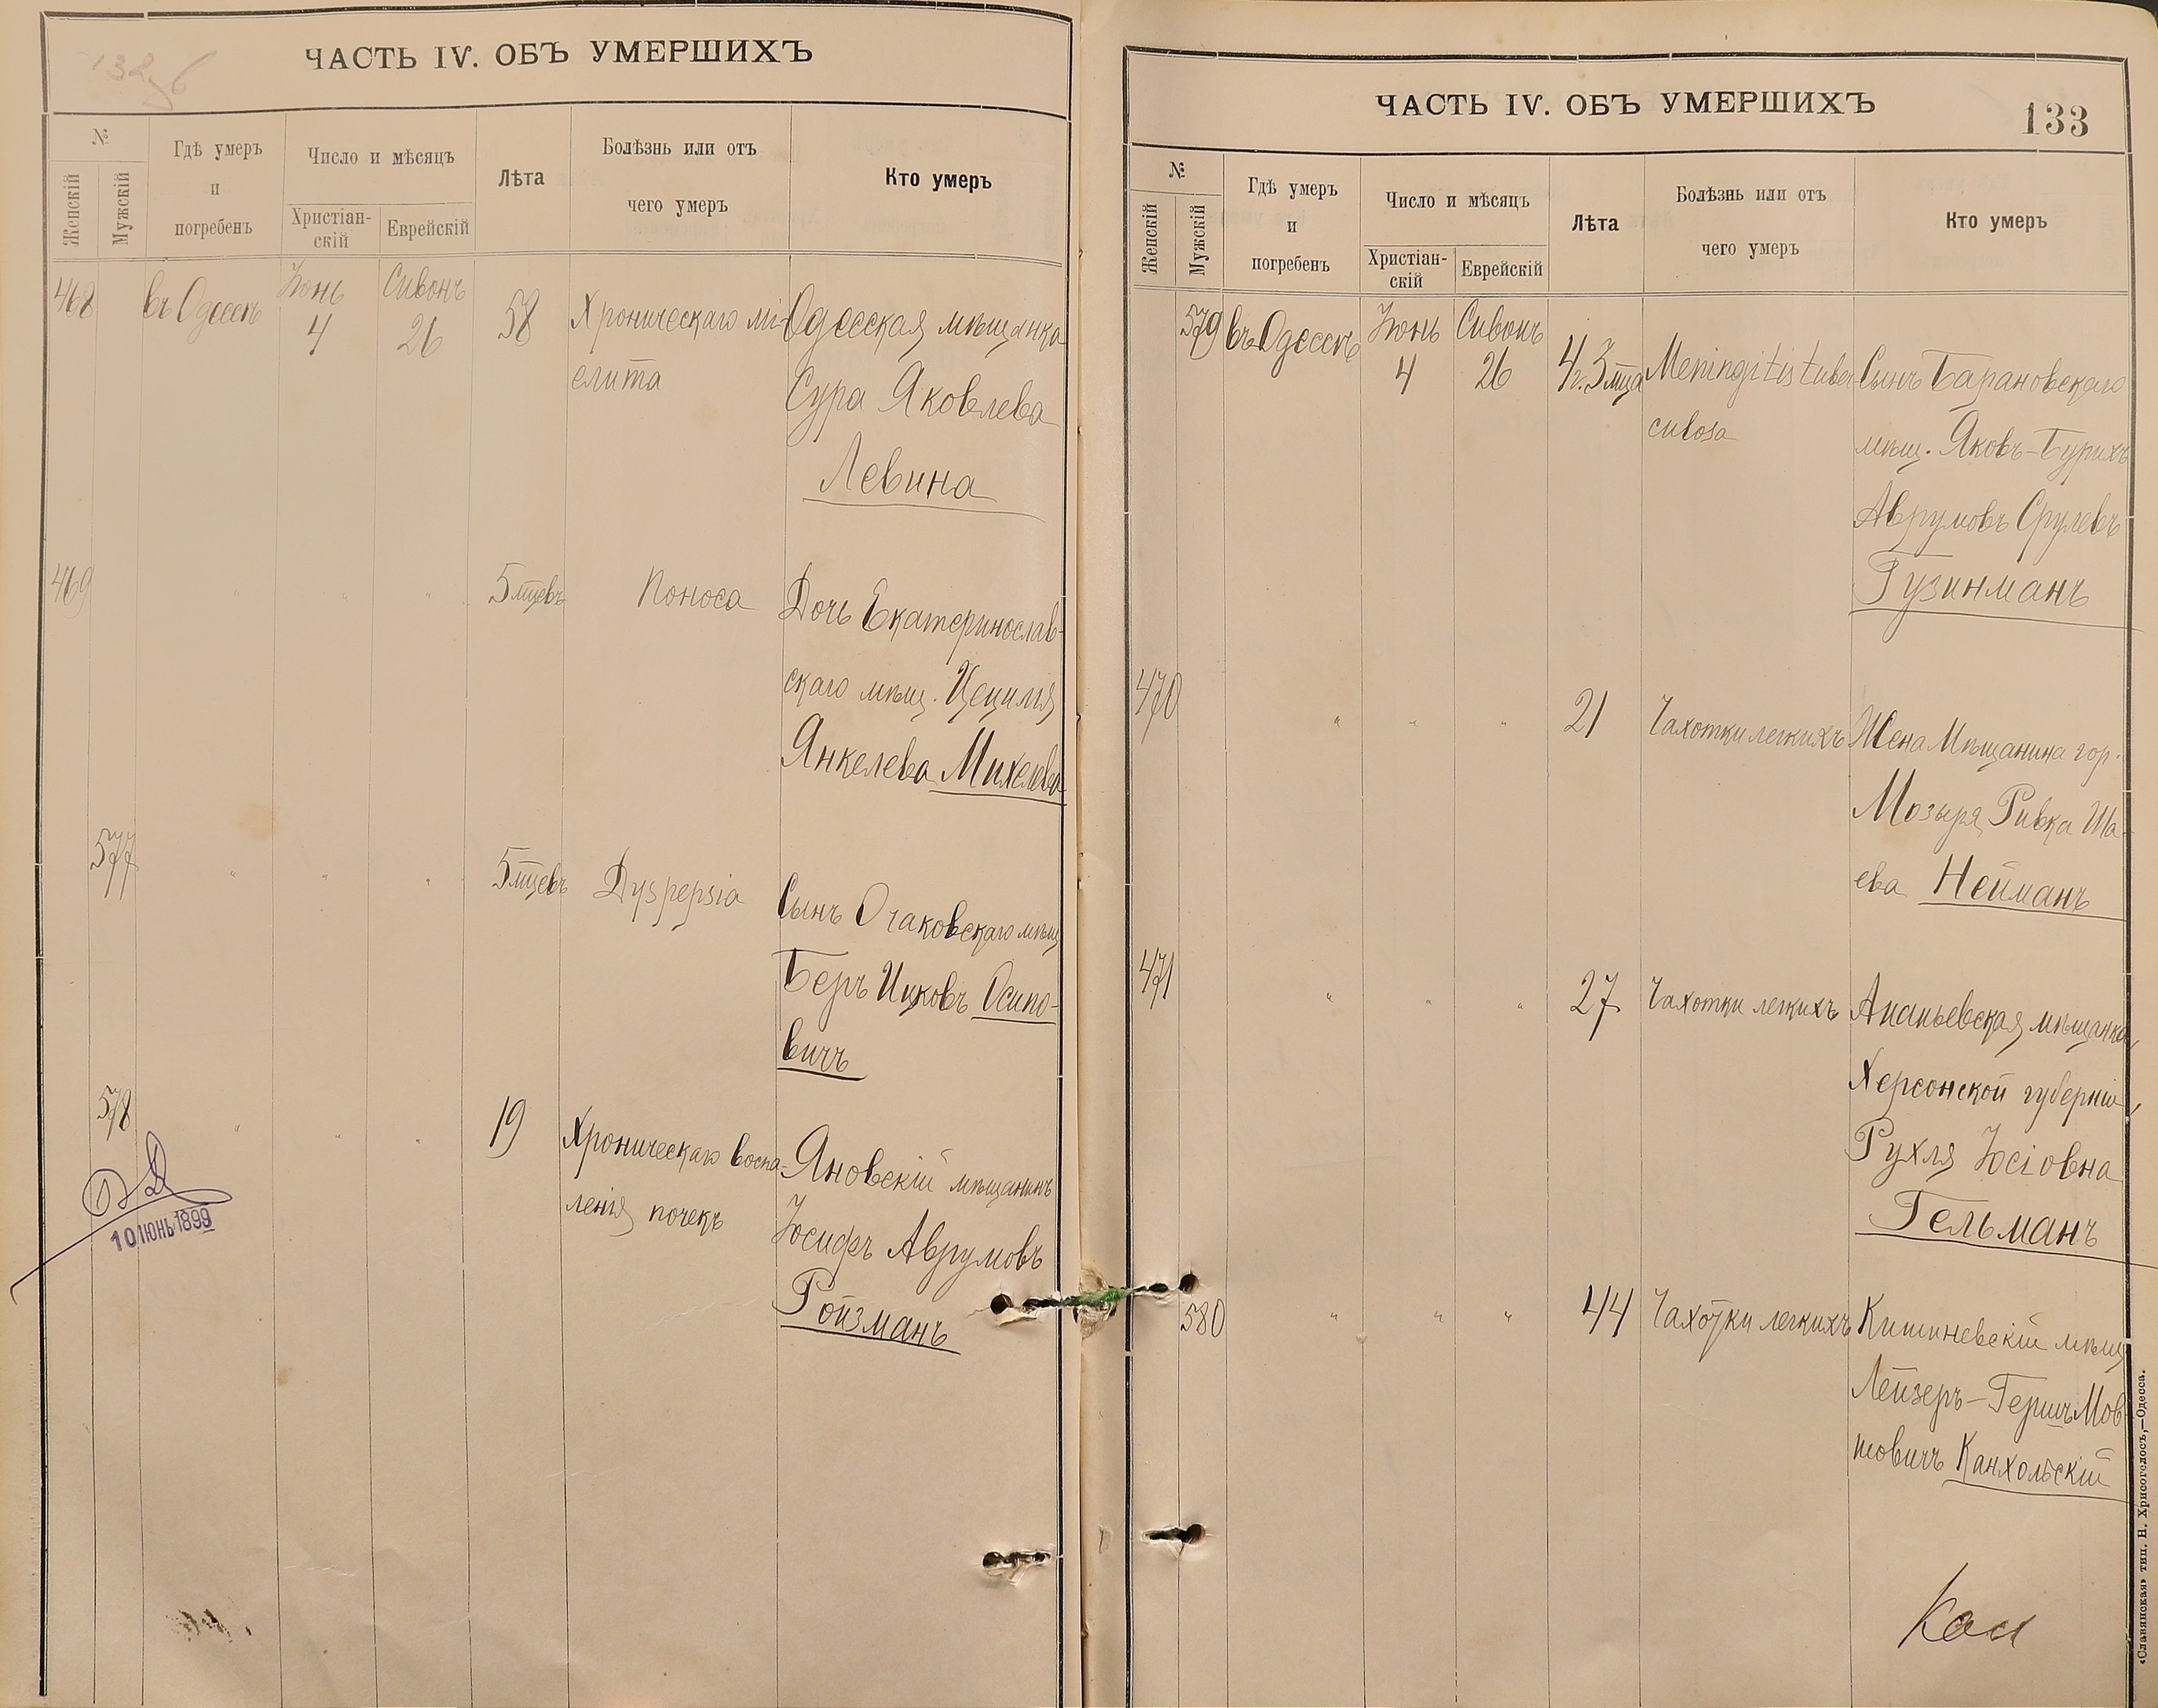 132 об
ЧАСТЬ IV. ОБЪ УМЕРШИХЪ
№
Женскій
Мужскій
Гдѣ умеръ
и
погребенъ
Число и мѣсяцъ
Христіан-
скій
Еврейскій
Лѣта
Болѣзнь или отъ
чего умеръ
Кто умеръ
468
въ Одессѣ
Іюнь
4
Сивонъ
26
58
Хроническаго мі-
елита
Одесская мѣщанка
Сура Яковлева
Левина
469
" " "
5 мцевъ
Поноса
Дочь Екатеринослав-
скаго мѣщ. Цецилія
Янкелева Михелева
577
" " "
5 мцевъ
Dyspepsia
Сынъ Очаковскаго мѣщ
Беръ Ицковъ Осипо-
вичъ
578
" " "
19
Хроническаго воспа-
ленія почекъ
Яновскій мѣщанинъ
Іосифъ Аврумовъ
Ройзманъ
10 ІЮНЬ 1899
ЧАСТЬ IV. ОБЪ УМЕРШИХЪ
133
№
Женскій
Мужскій
Гдѣ умеръ
и
погребенъ
Число и мѣсяцъ
Христіан-
скій
Еврейскій
Лѣта
Болѣзнь или отъ
чего умеръ
Кто умеръ
579
въ Одессѣ
Іюнь
4
Сивонъ
26
4 г. 3 мца
Meningitis tuber
culosa
Сынъ Барановскаго
мѣщ. Яковъ-Бурихъ
Аврумовъ Срулевъ
Гузинманъ
470
" " "
21
Чахотки легкихъ
Жена Мѣщанина гор.
Мозыря Ривка Ша-
ева Нейманъ
471
" " "
27
Чахотки легкихъ
Ананьевская мѣщанка,
Херсонской губерніи,
Рухля Іосіовна
Гельманъ
580
" " "
44
Чахотки легкихъ
Кишиневскій мѣщ
Лейзеръ-Гершъ Мов-
шовичъ Канхольскій
«Славянская» тип. Н. Хрисогелосъ,—Одесса.